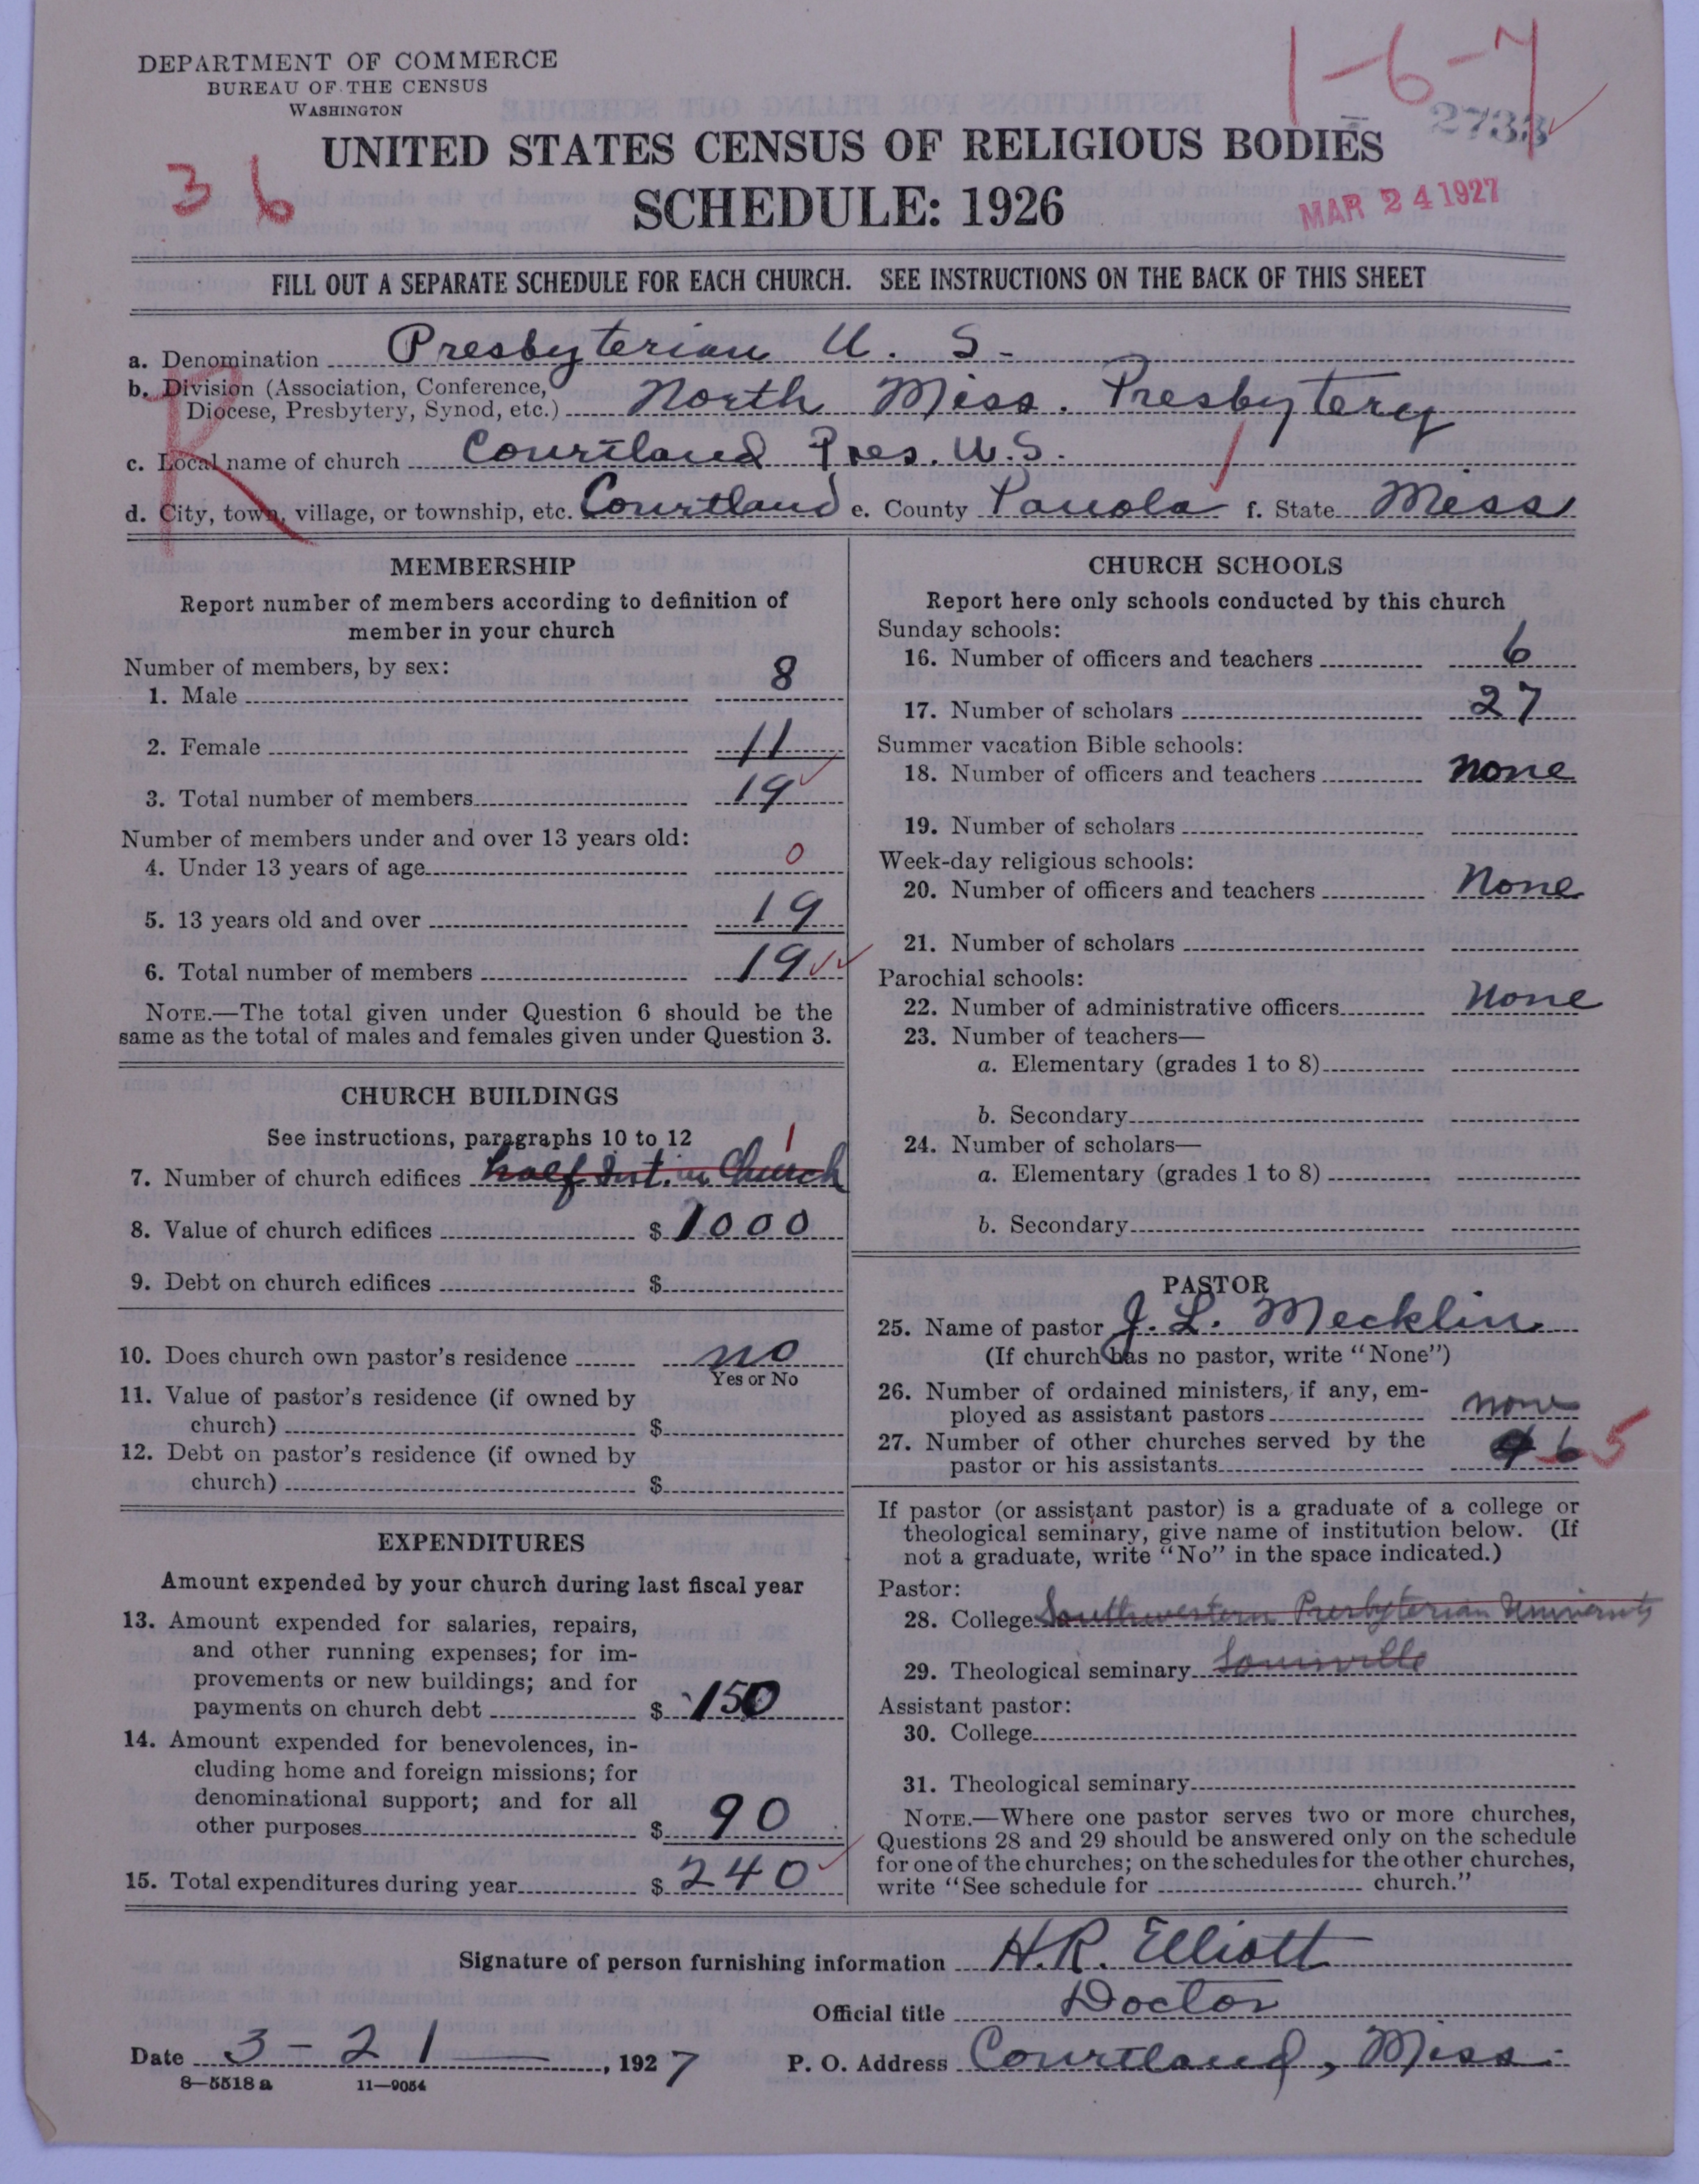 DEPARTMENT OF COMMERCE
BUREAU OF THE CENSUS
WASHINGTON
1-6-7
2733
UNITED STATES CENSUS OF RELIGIOUS BODIES
36
SCHEDULE: 1926
MAR 24 1927
FILL OUT A SEPARATE SCHEDULE FOR EACH CHURCH. SEE INSTRUCTIONS ON THE BACK OF THIS SHEET
a. Denomination Presbyterian U. S.
b. Division (Association, Conference,
Diocese, Presbytery, Synod, etc.) North Miss. Presbytery
R
c. Local name of church Courtland Pres. U.S.
d. City, town, village, or township, etc. Courtland e. County Panola f. State Miss
MEMBERSHIP
Report number of members according to definition of
member in your church
Number of members, by sex:
1. Male 8
2. Female 11
3. Total number of members 19
Number of members under and over 13 years old:
4. Under 13 years of age 0
5. 13 years old and over 19
6. Total number of members 19
NOTE.—The total given under Question 6 should be the
same as the total of males and females given under Question 3.
CHURCH BUILDINGS
See instructions, paragraphs 10 to 12
1
7. Number of church edifices half Int. in Church
8. Value of church edifices $ 1000
9. Debt on church edifices $
10. Does church own pastor's residence no
Yes or No
11. Value of pastor's residence (if owned by
church) $
12. Debt on pastor's residence (if owned by
church) $
EXPENDITURES
Amount expended by your church during last fiscal year
13. Amount expended for salaries, repairs,
and other running expenses; for im-
provements or new buildings; and for
payments on church debt $ 150
14. Amount expended for benevolences, in-
cluding home and foreign missions; for
denominational support; and for all
other purposes $ 90
15. Total expenditures during year $ 240
CHURCH SCHOOLS
Report here only schools conducted by this church
Sunday schools:
16. Number of officers and teachers 6
17. Number of scholars 27
Summer vacation Bible schools:
18. Number of officers and teachers none
19. Number of scholars
Week-day religious schools:
20. Number of officers and teachers None
21. Number of scholars
Parochial schools:
22. Number of administrative officers None
23. Number of teachers—
a. Elementary (grades 1 to 8)
b. Secondary
24. Number of scholars—
a. Elementary (grades 1 to 8)
b. Secondary
PASTOR
25. Name of pastor J. L. Mecklin
(If church has no pastor, write "None")
26. Number of ordained ministers, if any, em-
ployed as assistant pastors none
27. Number of other churches served by the
pastor or his assistants 6 5
If pastor (or assistant pastor) is a graduate of a college or
theological seminary, give name of institution below. (If
not a graduate, write "No" in the space indicated.)
Pastor:
28. College Southwestern Presbyterian University
29. Theological seminary Louisville
Assistant pastor:
30. College
31. Theological seminary
NOTE.—Where one pastor serves two or more churches,
Questions 28 and 29 should be answered only on the schedule
for one of the churches; on the schedules for the other churches,
write "See schedule for church."
Signature of person furnishing information H.R. Elliott
Official title Doctor
Date 3-21, 1927 P. O. Address Courtland, Miss.
8—5518a 11—9054